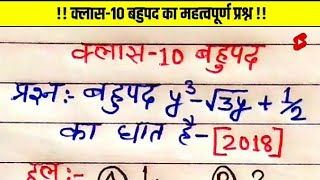 !! क्लास-10 बहुपद का महत्वपूर्ण प्रश्न !!
क्लास-10 बहुपद
प्रश्न:- बहुपद y³-√3y + 1/2
का घात है-[2018]
हल :- (A) 1. (B) 2